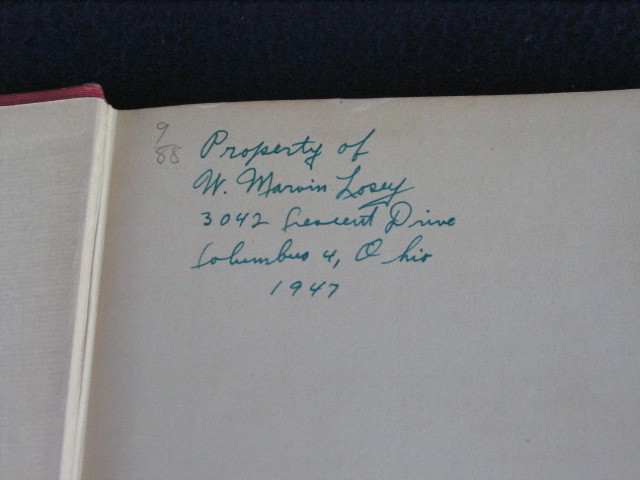 9/88
Property of
W. Marvin Losey
3042 Crescent Drive
Columbus 4, Ohio
1947